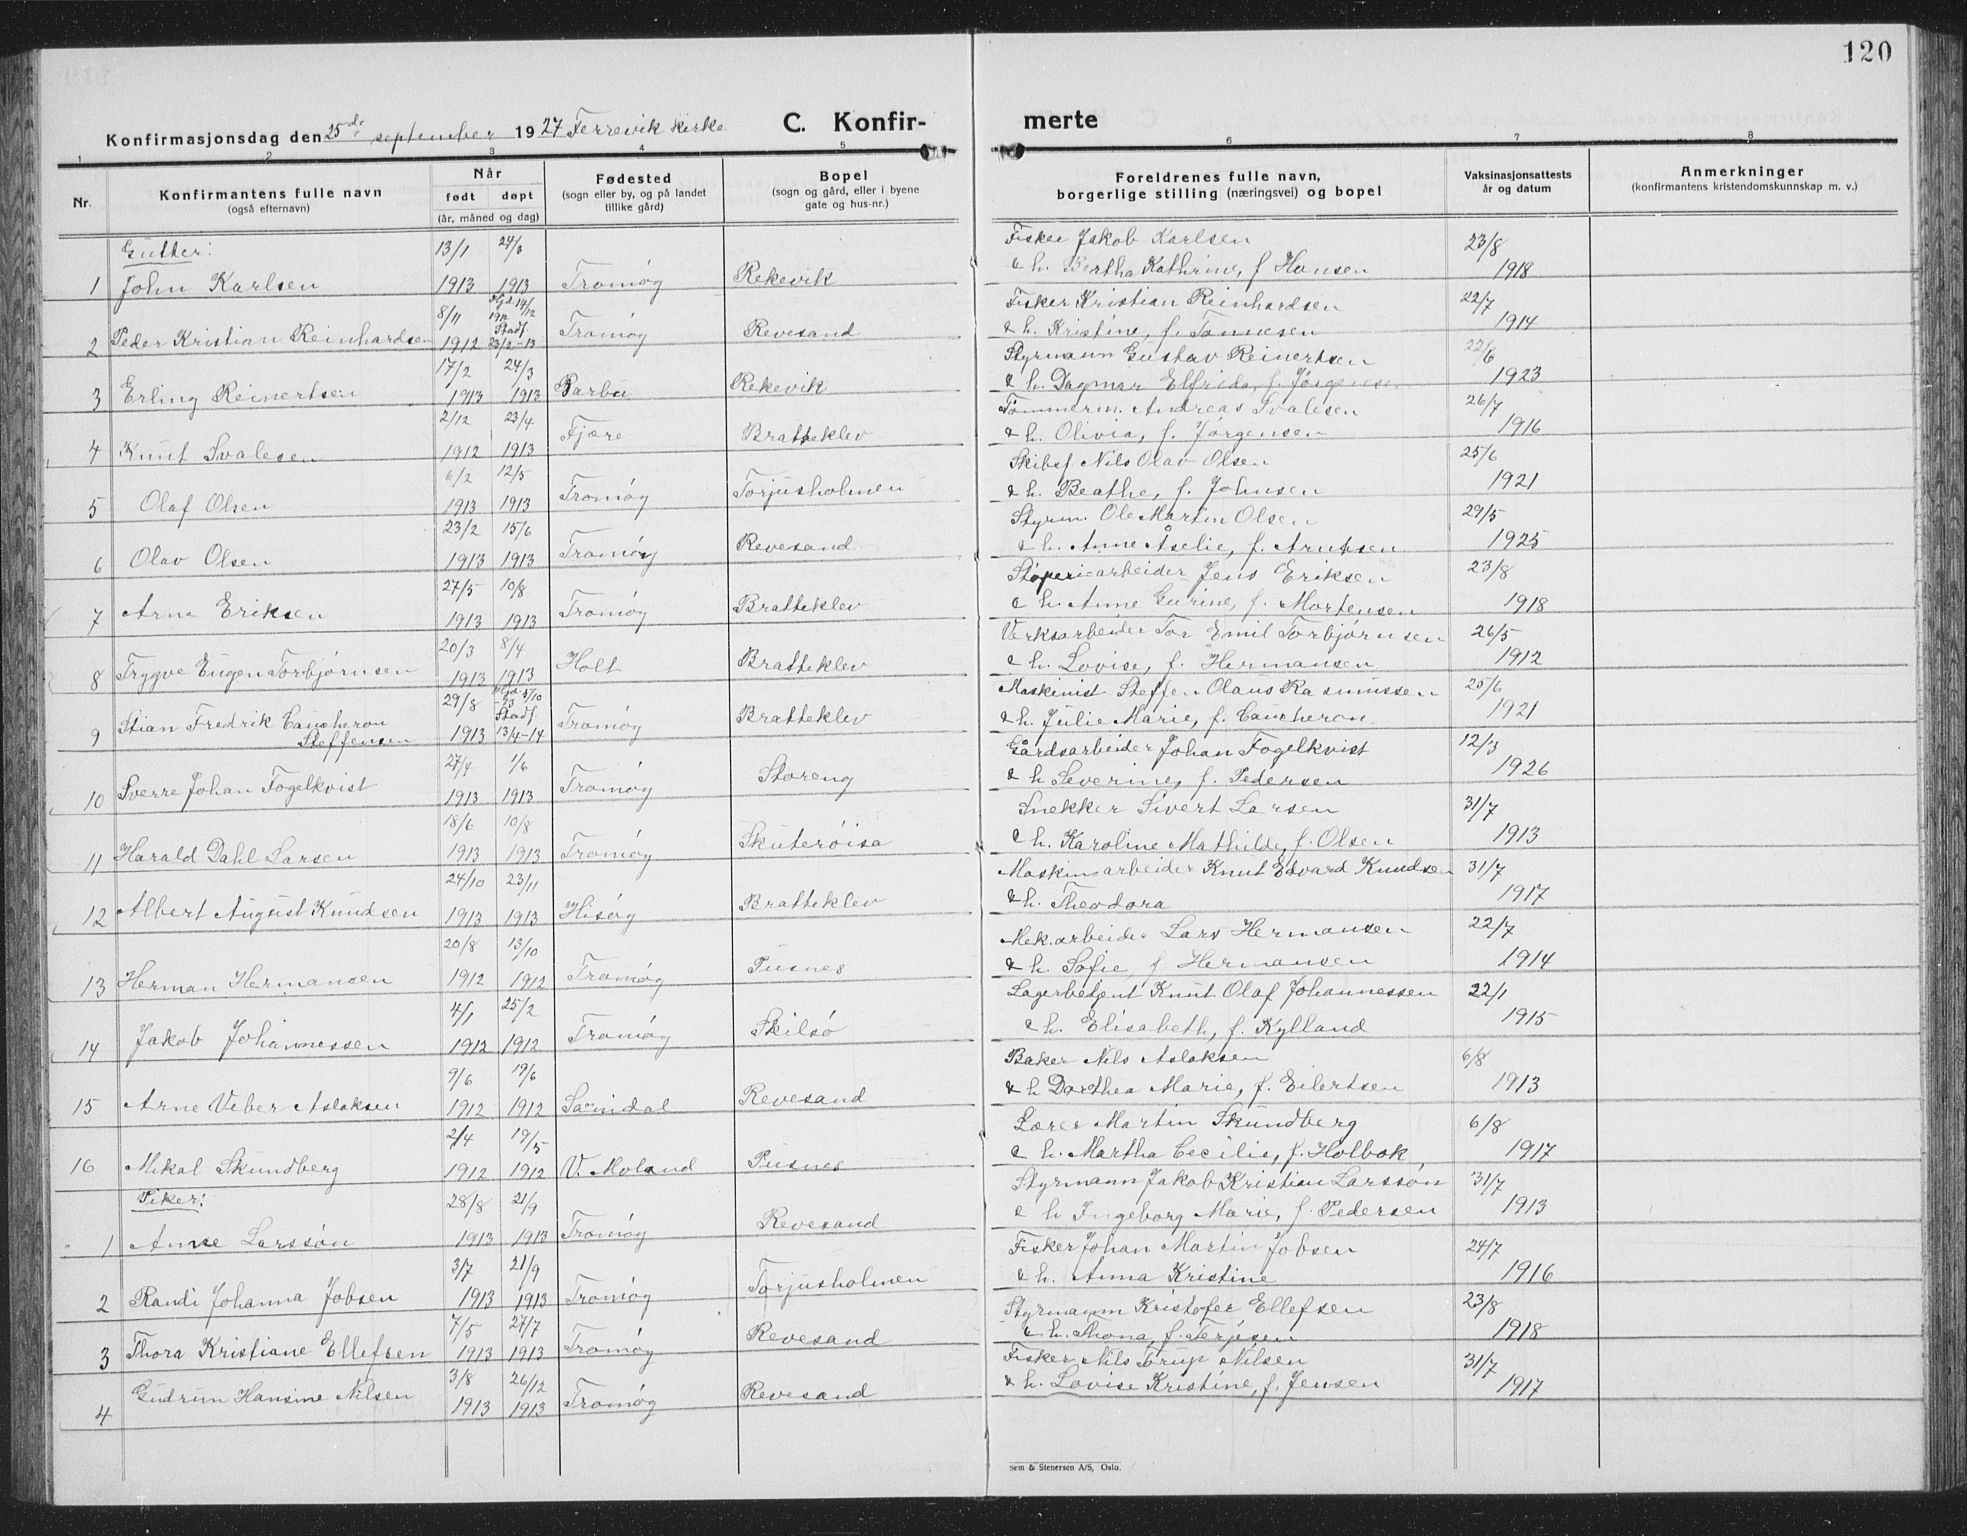 120
Konfirmasjonsdag den 25de september 1927 Færvik kirke C. Konfir- merte
1 2 3 4 5 6 7 8
Nr. Konfirmantens fulle navn (også efternavn) Når født døpt (år, måned og dag) Fødested (sogn eller by, og på landet tillike gård) Bopel (sogn og gård, eller i byene gate og hus-nr.) Foreldrenes fulle navn, borgerlige stilling (næringsvei) og bopel Vaksinasjonsattests år og datum Anmerkninger (konfirmantens kristendomskunnskap m. v.)
Gutter: 13/1 24/3 Fisker Jakob Karlsen 23/8
1 John Karlsen 1913 1913 Tromøy Rekevik & h. Bertha Kathrine, f. Hansen 1918
8/11 Hjd. 14/12 1912 Stadf. Fisker Kristian Reinhardsen 22/7
2 Peder Kristian Reinhardsen 1912 23/2-13 Tromøy Revesand & h. Kristine, f. Tønnesen 1914
17/2 24/3 Styrmann Gustav Reinertsen 22/6
3 Erling Reinertsen 1913 1913 Barbu Rekevik & h. Dagmar Elfrida, f. Jørgensen 1923
2/12 23/4 Tømmerm. Andreas Svalesen 26/7
4 Knut Svalesen 1912 1913 Fjære Bratteklev & h. Olivia, f. Jørgensen 1916
6/2 12/5 Skibsf. Nils Olav Olsen 25/6
5 Olaf Olsen 1913 1913 Tromøy Torjusholmen & h. Beathe, f. Johnsen 1921
23/2 15/6 Styrm. Ole Martin Olsen 29/5
6 Olav Olsen 1913 1913 Tromøy Revesand & h. Anne Åselie, f. Arntsen 1925
27/5 10/8 Støperiearbeider Jens Eriksen 23/8
7 Arne Eriksen 1913 1913 Tromøy Bratteklev & h. Anne Gurine, f. Mortensen 1918
20/3 8/4 Verksarbeider Tor Emil Torbjørnsen 26/5
8 Trygve Eugen Torbjørnsen 1913 1913 Holt Bratteklev & h. Lovise, f. Hermansen 1912
29/8 Hjd. 5/10 -13 Stadf. Maskinist Steffen Olaus Rasmussen 25/6
9 Stian Fredrik Caucheron Steffensen 1913 13/4-14 Tromøy Bratteklev & h. Julie Marie, f. Caucheron. 1921
27/4 1/6 Gårdsarbeider Johan Fogelkvist 12/3
10 Sverre Johan Fogelkvist 1913 1913 Tromøy Storeng & h. Severine, f. Pedersen 1926
18/6 10/8 Snekker Sivert Larsen 31/7
11 Harald Dahl Larsen 1913 1913 Tromøy Skuterøisa & h. Karoline Mathilde, f. Olsen 1913
24/10 23/11 Maskinsarbeider Knut Edvard Knudsen 31/7
12 Albert August Knudsen 1913 1913 Hisøy Bratteklev & h. Theodora 1917
20/8 13/10 Mek. arbeider Lars Hermansen 22/7
13 Herman Hermansen 1912 1912 Tromøy Pusnes & h. Sofie, f. Hermansen 1914
4/1 25/2 Lagerbetjent Knut Olaf Johannessen 22/1
14 Jakob Johannessen 1912 1912 Tromøy Skilsø & h. Elisabeth, f. Kylland 1915
9/6 19/6 Baker Nils Aslaksen 6/8
15 Arne Veber Aslaksen 1912 1912 Sannidal Revesand & h Dorthea Marie, f. Eilertsen 1913
2/4 19/5 Lærer Martin Skundberg 6/8
16 Mikal Skundberg 1912 1912 V. Moland Pusnes & h. Martha Cecilie, f. Holbok 1917
Piker: 28/8 21/9 Styrmann Jakob Kristian Larssøn 31/7
1 Anne Larssøn 1913 1913 Tromøy Revesand & h Ingeborg Marie, f. Pedersen 1913
3/7 21/9 Fisker Johan Martin Jobsen 24/7
2 Randi Johanna Jobsen 1913 1913 Tromøy Torjusholmen & h. Anna Kristine 1916
7/5 27/7 Styrmann Kristofer Ellefsen 23/8
3 Thora Kristiane Ellefsen 1913 1913 Tromøy Revesand & h. Thona, f. Terjesen 1918
3/8 26/12 Fisker Nils Torup Nilsen 31/7
4 Gudrun Hansine Nilsen 1913 1913 Tromøy Revesand & h. Lovise Kristine, f. Jensen 1917
Sem & Stenersen A/S, Oslo.